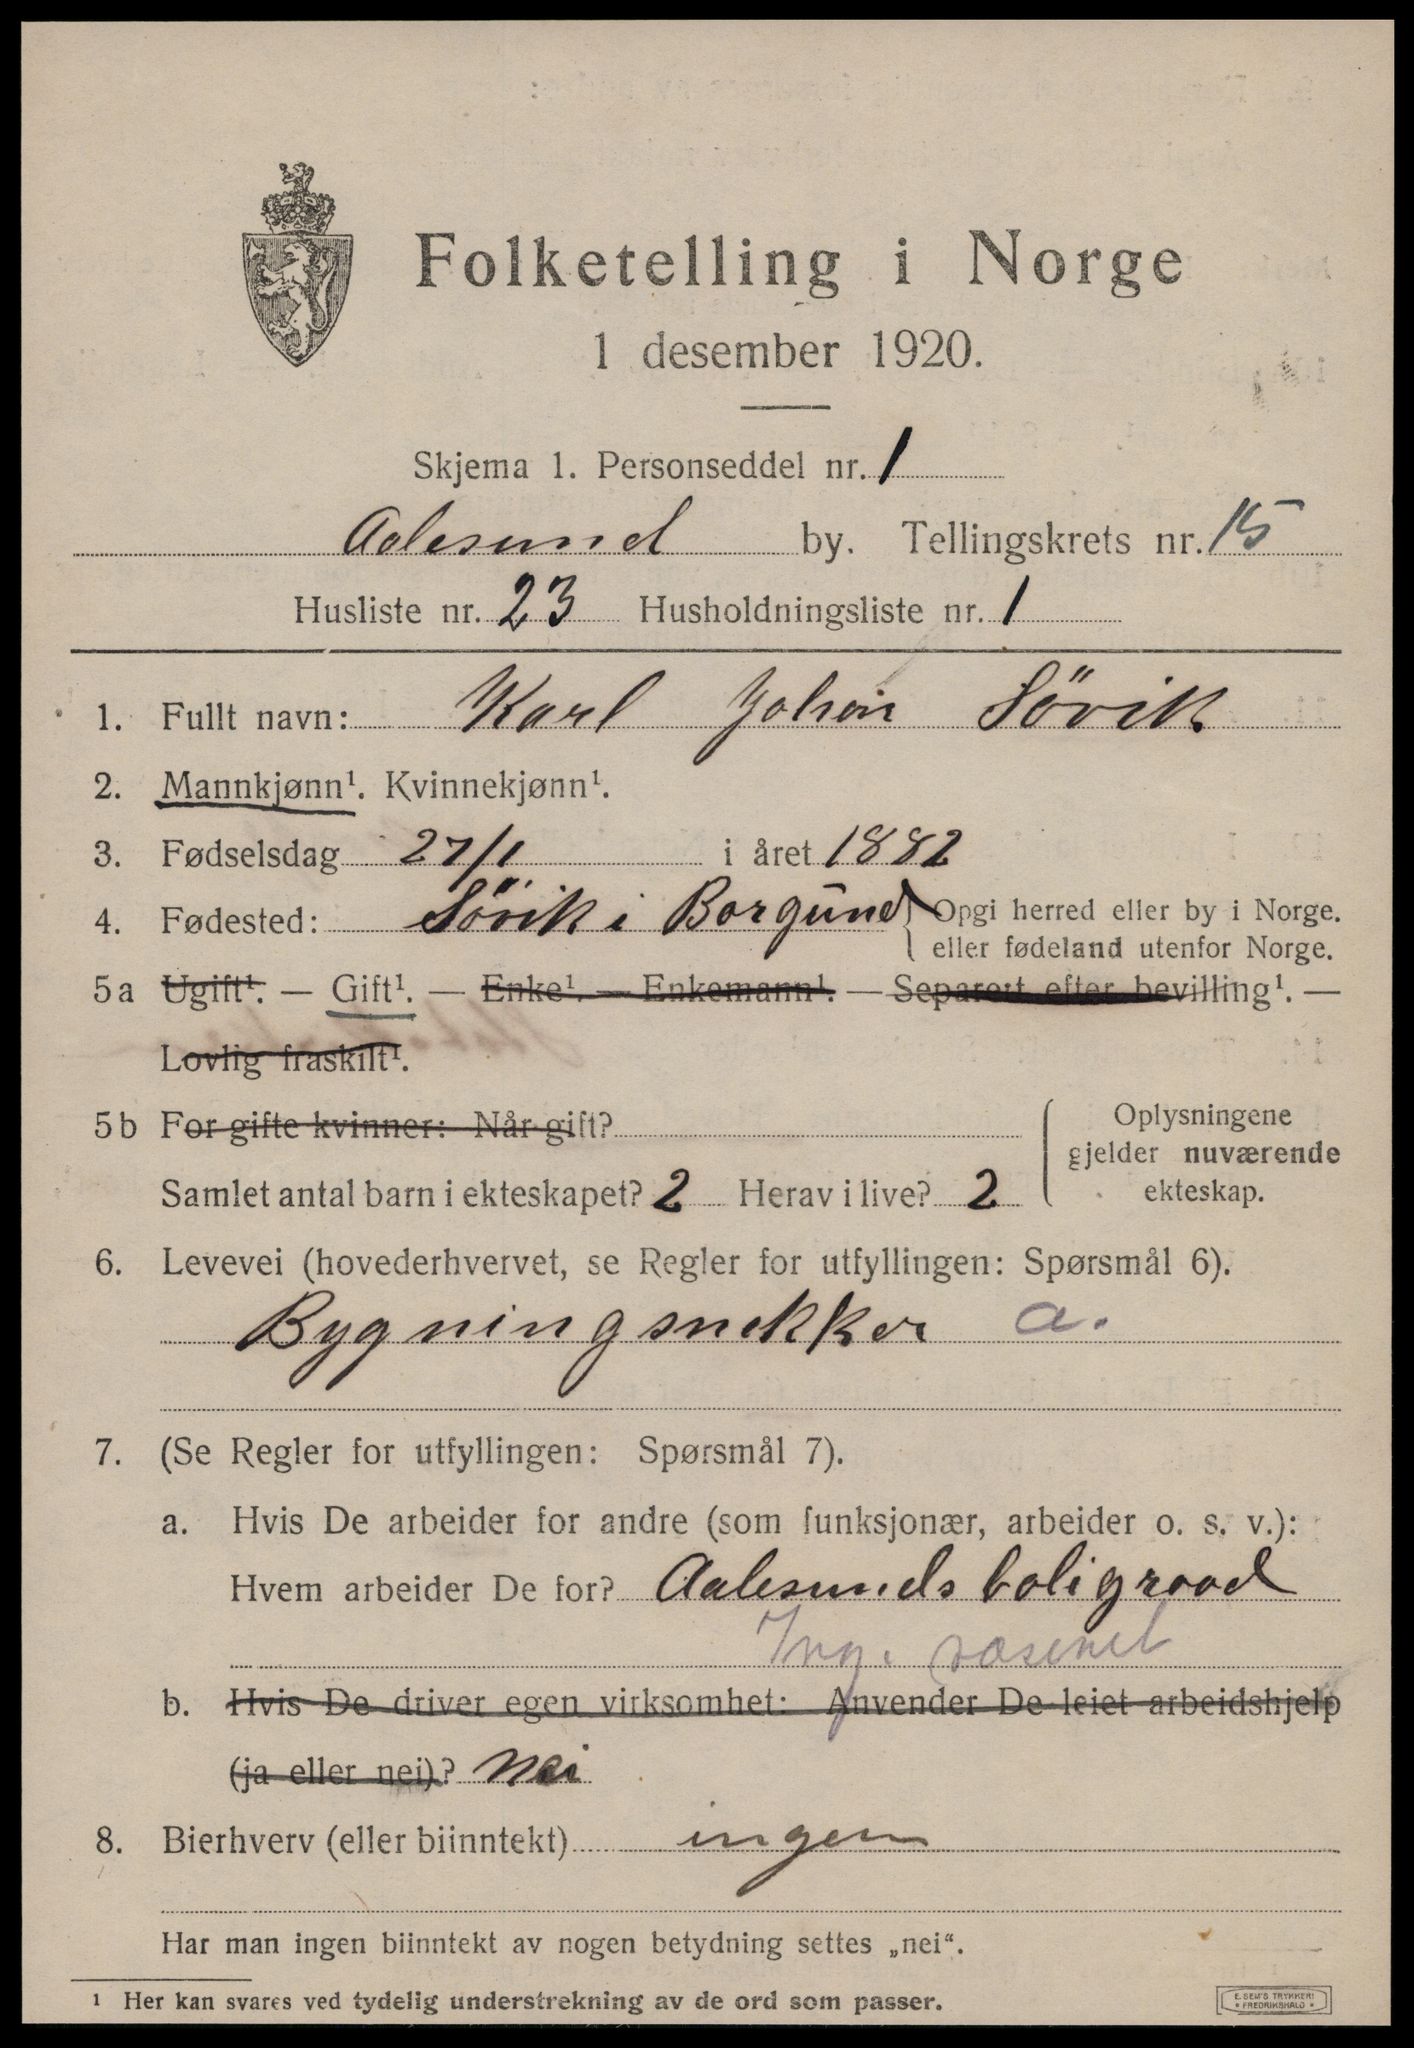 Folketelling i Norge
1 desember 1920.
Skjema 1. Personseddel nr. 1
Aalesund by. Tellingskrets nr. 15
Husliste nr. 23 Husholdningsliste nr. 1
1. Fullt navn: Karl Johan Sövik
2. Mannkjønn¹. Kvinnekjønn¹.
3. Fødselsdag 27/1 i året 1882
4. Fødested: Sövik i Borgund { Opgi herred eller by i Norge.
eller fødeland utenfor Norge.
5a Ugift¹. — Gift¹. — Enke¹. — Enkemann¹. — Separert efter bevilling¹. —
Lovlig fraskilt¹.
5b For gifte kvinner: Når gift?
Samlet antal barn i ekteskapet? 2 Herav i live? 2
Oplysningene
gjelder nuværende
ekteskap.
6. Levevei (hovederhvervet, se Regler for utfyllingen: Spørsmål 6).
Bygningsnekker a.
7. (Se Regler for utfyllingen: Spørsmål 7).
a. Hvis De arbeider for andre (som funksjonær, arbeider o. s. v.):
Hvem arbeider De for? Aalesunds boligraad
Ing. væsenet
b. Hvis De driver egen virksomhet: Anvender De leiet arbeidshjelp
(ja eller nei)? Nei
8. Bierhverv (eller biinntekt) ingen
Har man ingen biinntekt av nogen betydning settes „nei“.
¹ Her kan svares ved tydelig understrekning av de ord som passer.
E. SEM'S TRYKKERI
• FREDRIKSHALD •